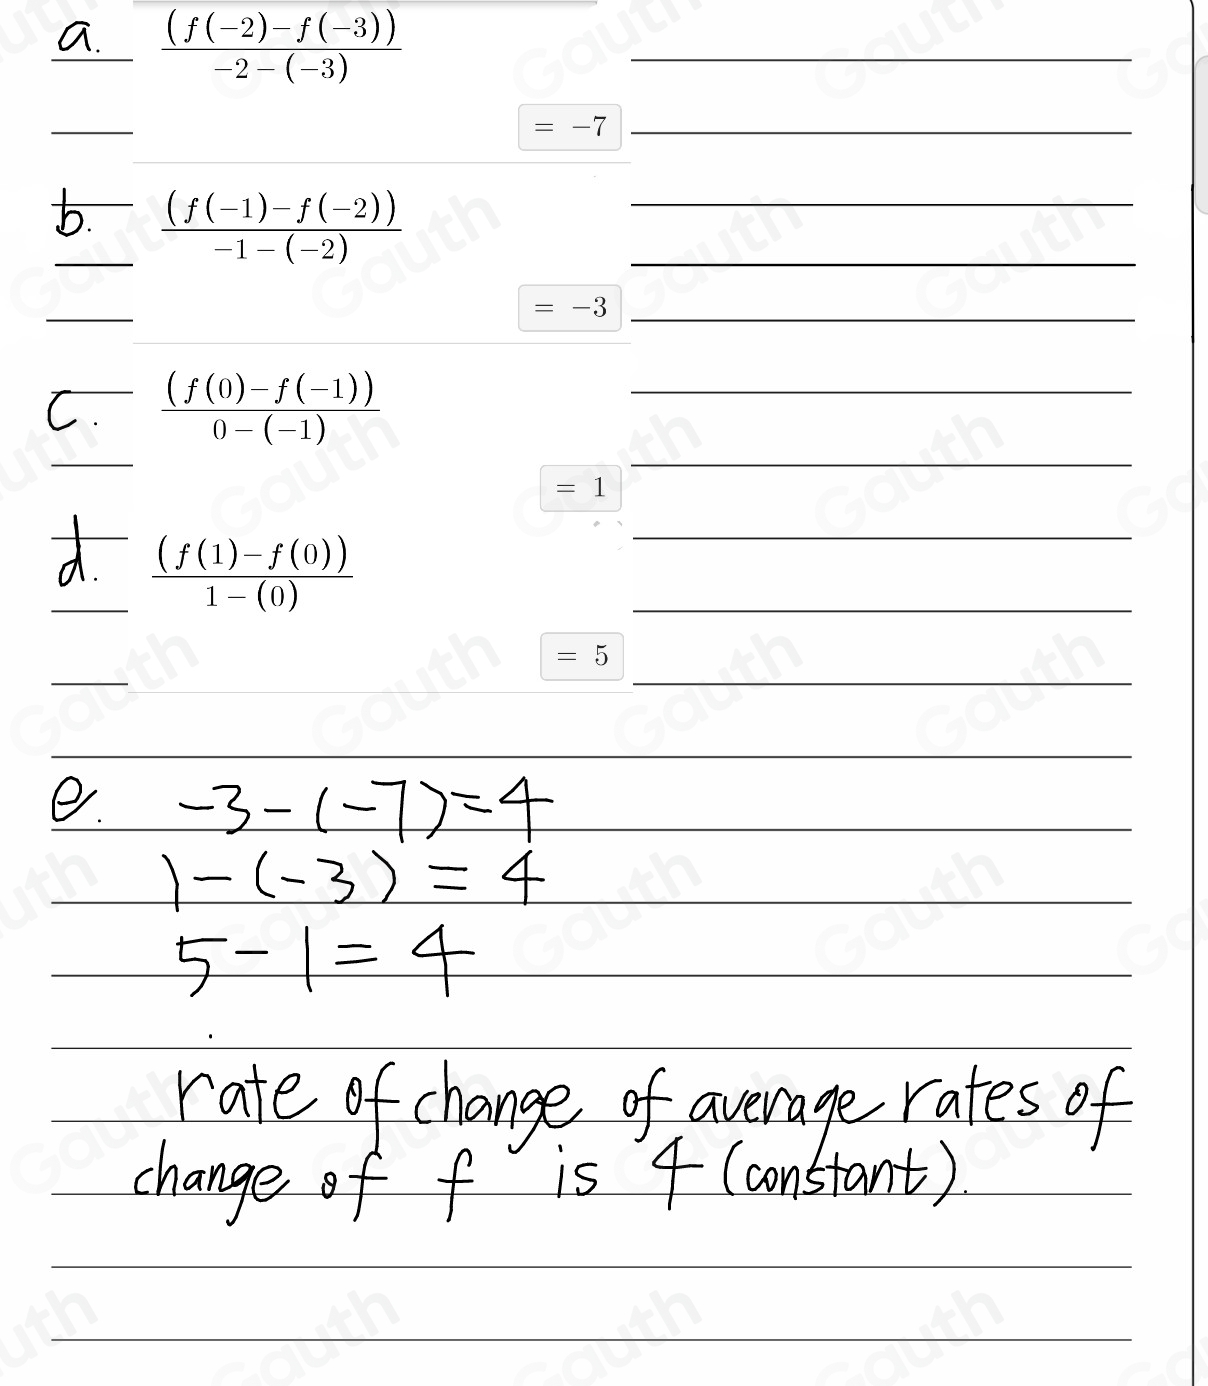 a. (f(−2)−f(−3))
−2−(−3)
= −7
b. (f(−1)−f(−2))
−1−(−2)
= −3
c. (f(0)−f(−1))
0−(−1)
= 1
d. (f(1)−f(0))
1−(0)
= 5
e. −3−(−7)=4
1−(−3)=4
5−1=4
rate of change of average rates of
change of f is 4 (constant).
Gauth